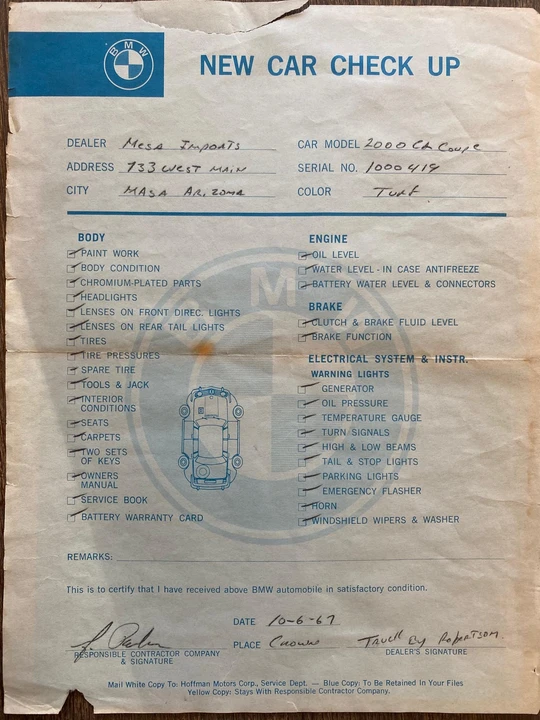 BMW
NEW CAR CHECK UP
DEALER Mesa Imports CAR MODEL 2000 CA Coupe
ADDRESS 733 West Main SERIAL NO. 1000419
CITY Masa Arizona COLOR Turf
BODY
PAINT WORK
BODY CONDITION
CHROMIUM-PLATED PARTS
HEADLIGHTS
LENSES ON FRONT DIREC. LIGHTS
LENSES ON REAR TAIL LIGHTS
TIRES
TIRE PRESSURES
SPARE TIRE
TOOLS & JACK
INTERIOR
CONDITIONS
SEATS
CARPETS
TWO SETS
OF KEYS
OWNERS
MANUAL
SERVICE BOOK
BATTERY WARRANTY CARD
ENGINE
OIL LEVEL
WATER LEVEL - IN CASE ANTIFREEZE
BATTERY WATER LEVEL & CONNECTORS
BRAKE
CLUTCH & BRAKE FLUID LEVEL
BRAKE FUNCTION
ELECTRICAL SYSTEM & INSTR.
WARNING LIGHTS
GENERATOR
OIL PRESSURE
TEMPERATURE GAUGE
TURN SIGNALS
HIGH & LOW BEAMS
TAIL & STOP LIGHTS
PARKING LIGHTS
EMERGENCY FLASHER
HORN
WINDSHIELD WIPERS & WASHER
REMARKS:
This is to certify that I have received above BMW automobile in satisfactory condition.
DATE 10-6-67
PLACE Crown Truck By Robertson.
RESPONSIBLE CONTRACTOR COMPANY
& SIGNATURE
DEALER'S SIGNATURE
Mail White Copy To: Hoffman Motors Corp., Service Dept. — Blue Copy: To Be Retained In Your Files
Yellow Copy: Stays With Responsible Contractor Company.